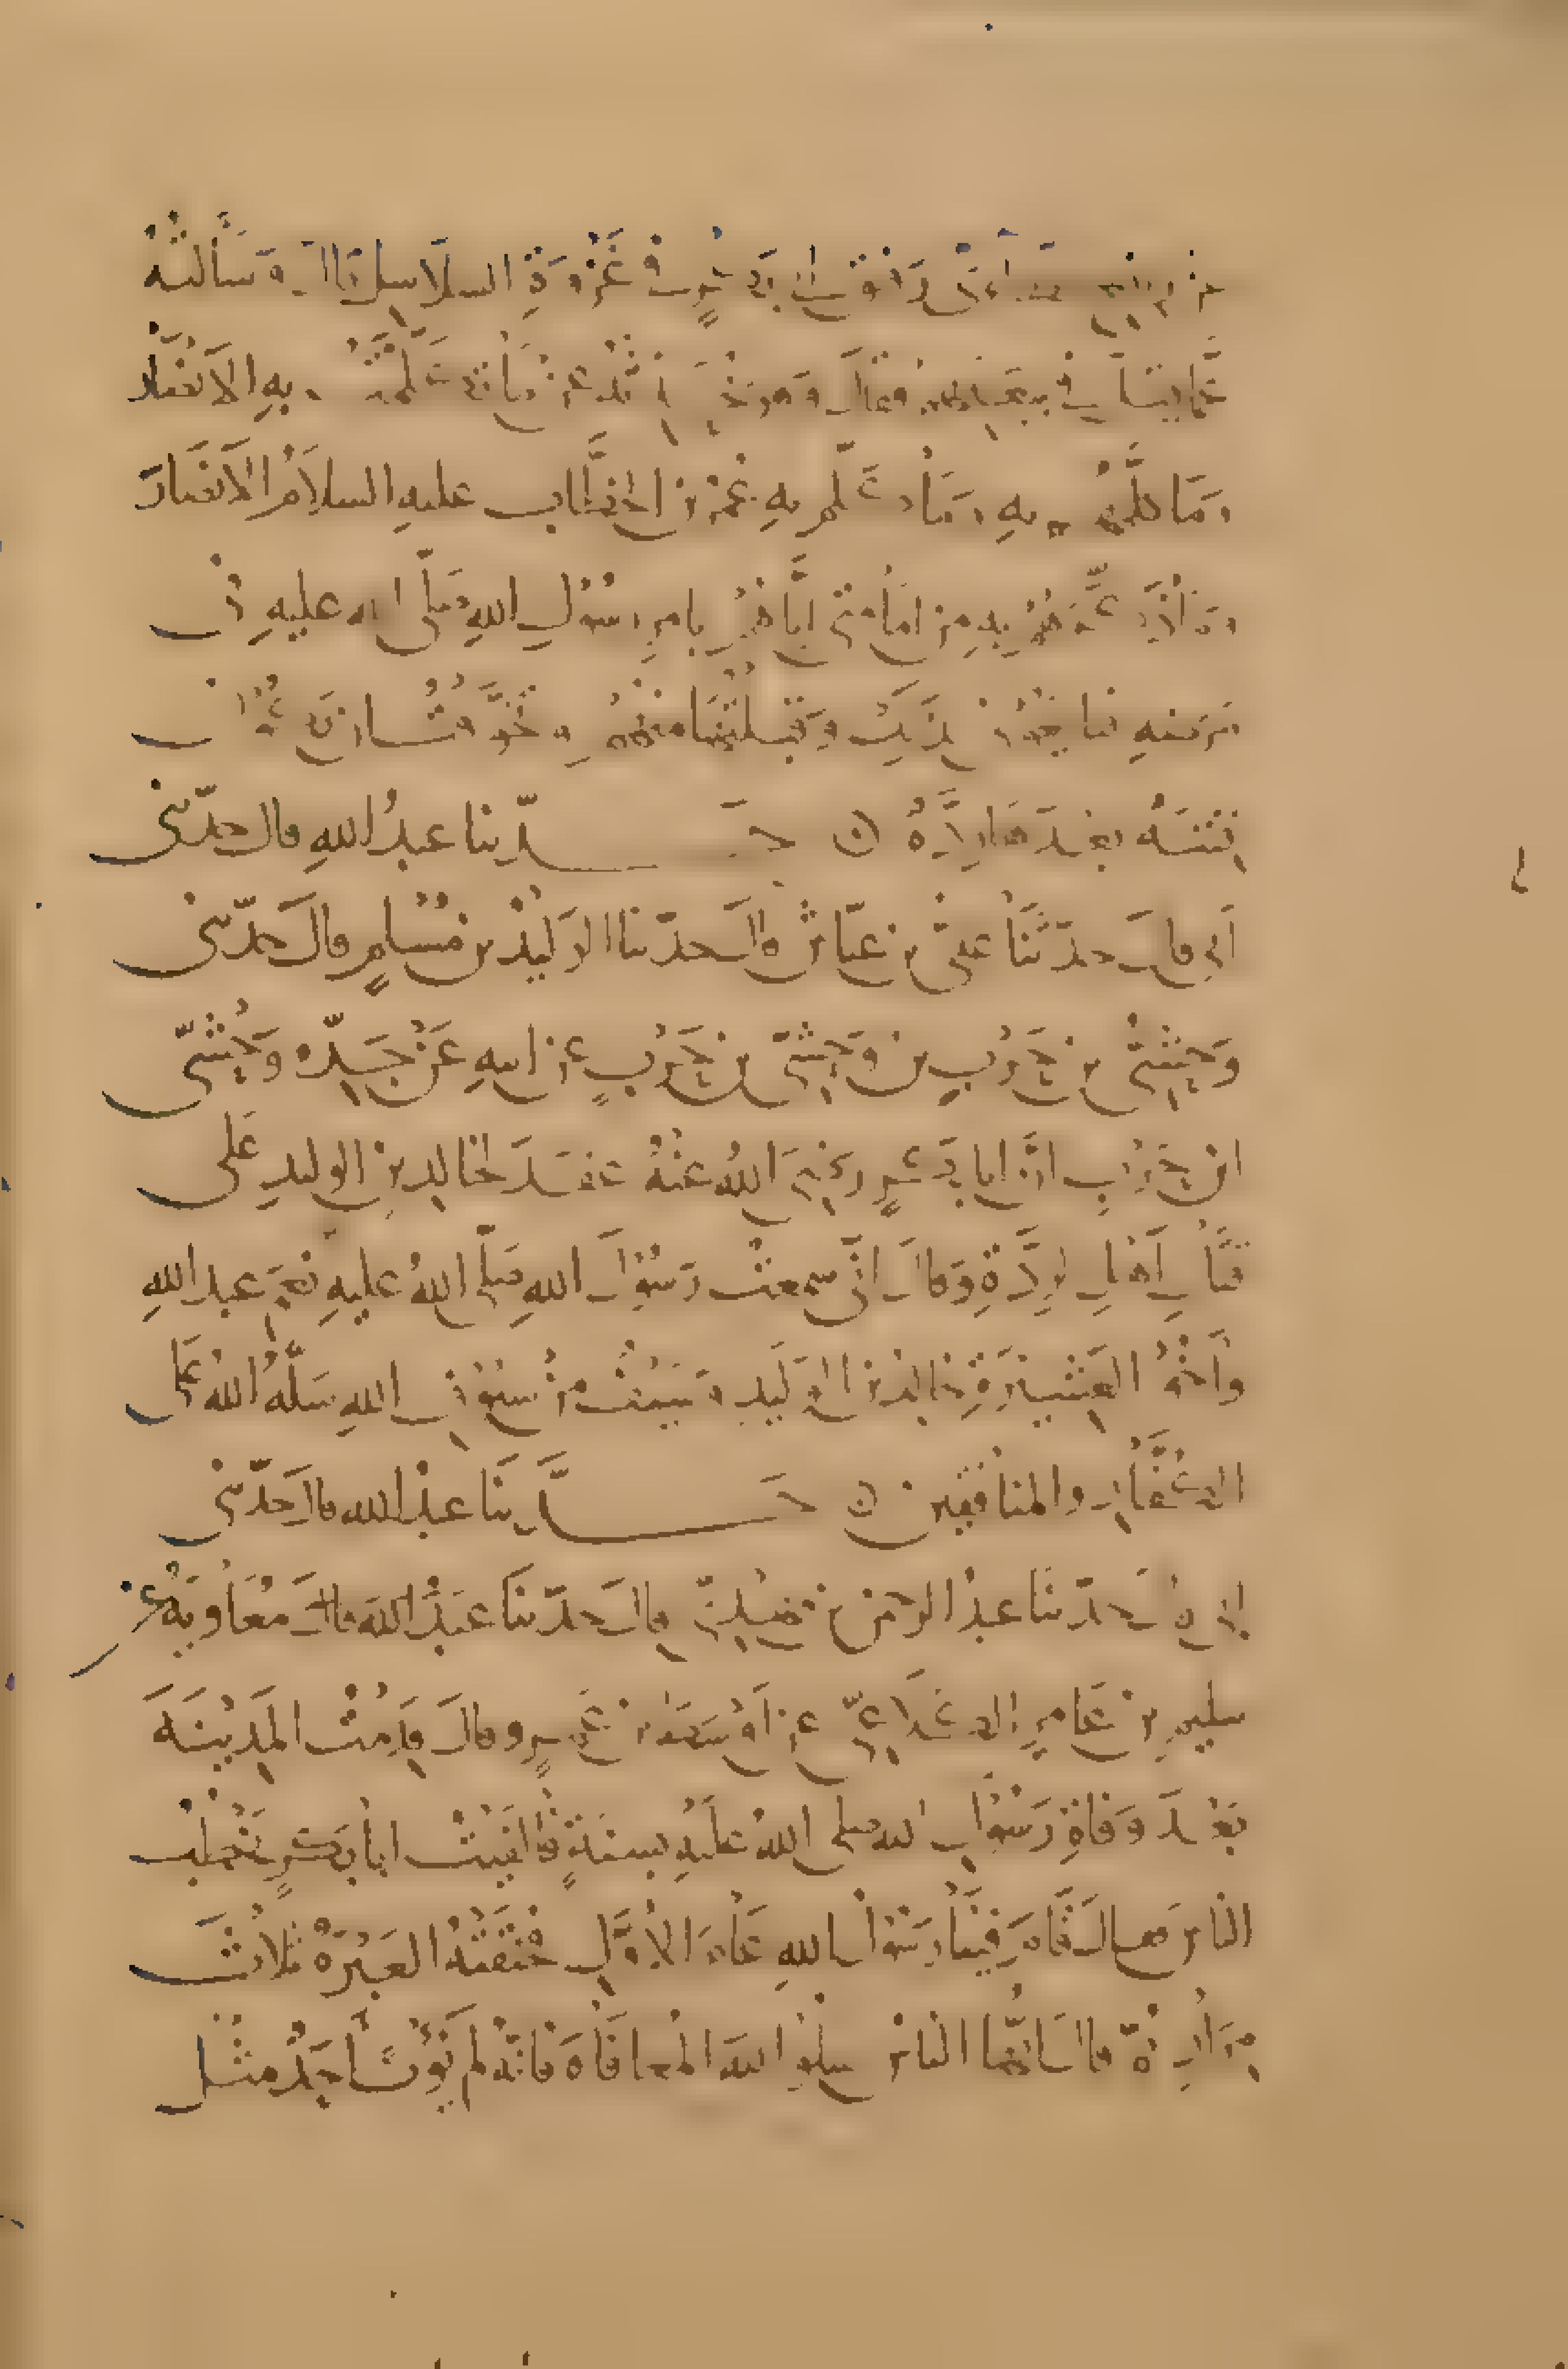 رافع الطائي رفيق أبي بكر في غزوة السلاسل قال وسألته
عما قيل في بيعتهم فقال وهو يحدثه عن ما تكلمت به الانصار
وما كلمهم به وما كلم به عمر بن الخطاب عليه السلام الانصار
وما ذكرهم به من امامتي اياهم بامر رسول الله صلى الله عليه في
مرضه فبايعوني لذلك وقبلتها منهم وتخوفت ان تكون
فتنة بعدها ردة ن حدثنا عبد الله قال حدثني
أبي قال حدثنا علي بن عياش قال حدثنا الوليد بن مسلم قال حدثني
وحشي بن حرب بن وحشي بن حرب عن ابيه عن جده وحشي
ابن حرب ان ابا بكر رضي الله عنه عقد لخالد بن الوليد على
قتال أهل الردة وقال اني سمعت رسول الله صلى الله عليه نعم عبد الله
وأخو العشيرة خالد بن الوليد وسيف من سيوف الله سله الله على
الكفار والمنافقين ن حدثنا عبد الله قال حدثني
ابي قال حدثنا عبد الرحمن بن مهدي قال حدثنا عبد الله قال معاوية عن
سليم بن عامر الكلاعي عن أوسط بن عمرو قال قدمت المدينة
بعد وفاة رسول الله صلى الله عليه بسنة فألفيت ابا بكر يخطب
الناس فقال قام فينا رسول الله عام الأول فخنقته العبرة ثلاث
مرار ثم قال يا أيها الناس سلوا الله المعافاة فانه لم يؤت أحد مثل